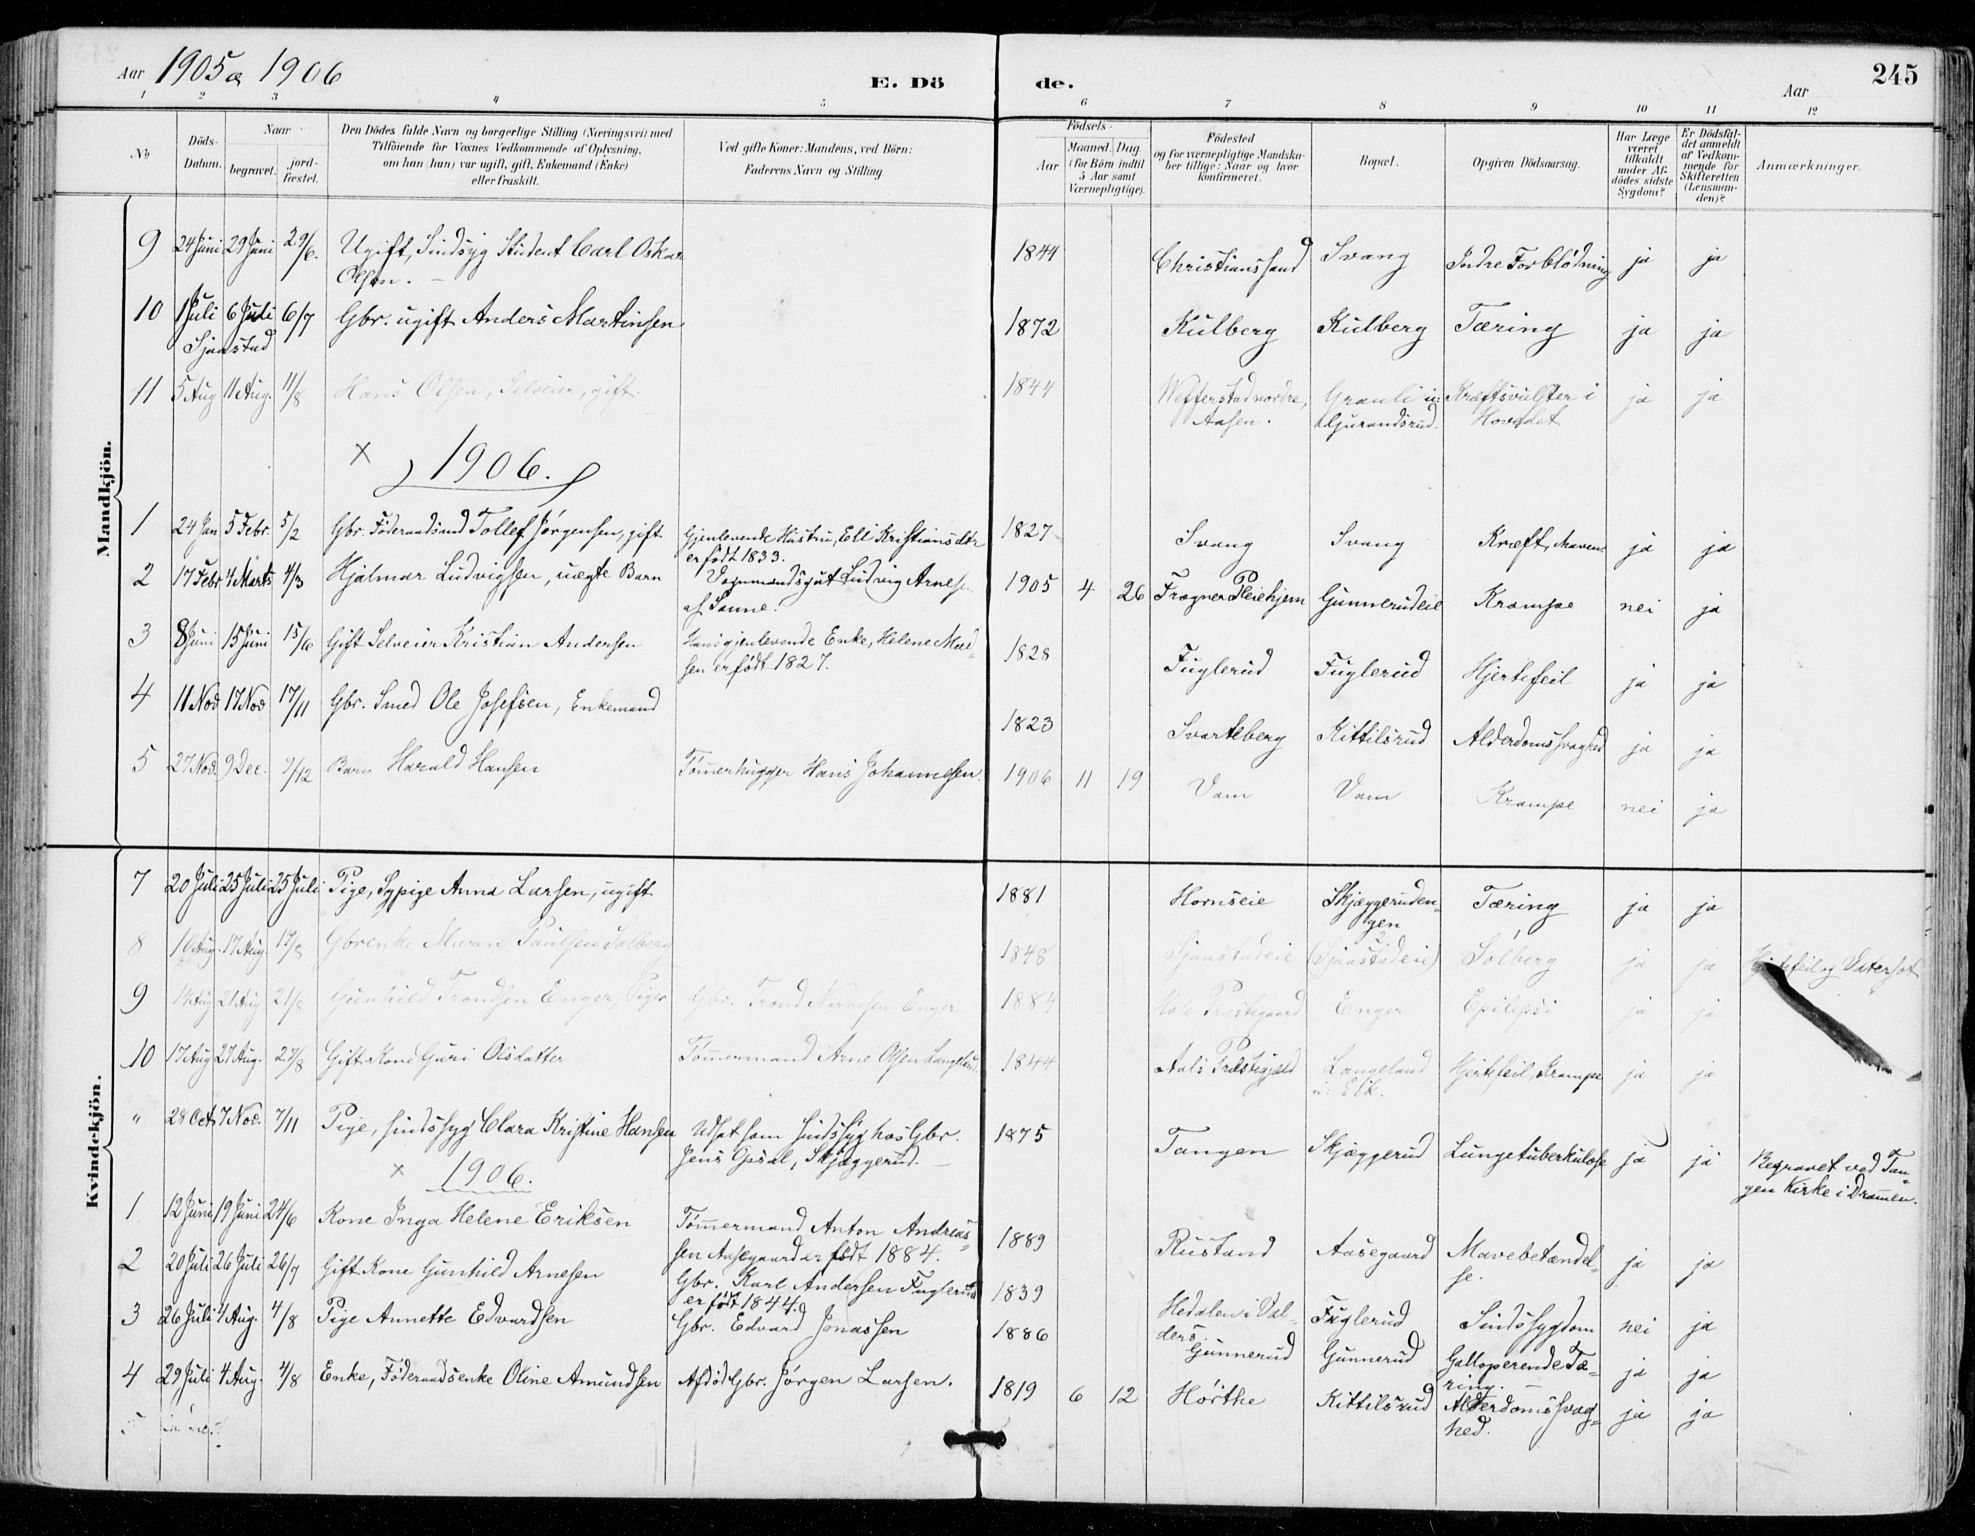 Aar 1905 & 1906
E. Dö de.
Aar
245
1 2 3 4 5 6 7 8 9 10 11 12
No
Döds-Datum.
Naar
begravet.
jord-fæstet.
Den Dödes fulde Navn og borgerlige Stilling (Næringsvei) med
Tilföiende for Voxnes Vedkommende af Oplysning,
om han (hun) var ugift, gift, Enkemand (Enke)
eller fraskilt.
Ved gifte Koner: Mandens, ved Börn:
Faderens Navn og Stilling
Födsels-
Aar
Maaned. Dag
(for Börn indtil
5 Aar samt
Værnepligtige).
Födested
og for værnepligtige Mandska-
ber tillige: Naar og hvor
konfirmeret.
Bopæl.
Opgiven Dödsaarsag.
Har Læge
været
tilkaldt
under Af-
dödes sidste
Sygdom?
Er Dödsfal-
det anmeldt
af Vedkom-
mende for
Skifteretten
(Lensman-
den)?
Anmærkninger.
Mandkjön.
9 24 Juni 29 Juni 29/6. Ugift, Sindsyg Student Carl Oskar 1844 Christianssand Svang Indre Forblödning ja ja
Olsen.
10 1 Juli 6 Juli 6/7 Gbr. ugift Anders Martinsen 1872 Kulberg Kulberg Tæring ja ja
Sjaastad
11 5 Aug 11 Aug. 11/8 Hans Olsen, Selveier, gift. 1844 Wefferstad nordre, Granli u: Kræftsvulster i ja ja
Aasen. Gjurandsrud. Hovedet
x 1906.
1 24 Jan 5 Febr. 5/2 Gbr. Föderaadsmd Tollef Jörgensen, gift Gjenlevende Hustru, Eli Kristiansdtr 1827 Svang Svang Kræft, Maven ja ja
er födt 1833.
2 17 Febr 4 Marts 4/3 Hjalmar Ludvigsen, uægte Barn Vognmandsgut Ludvig Arnes 1905 4 26 Frogner Pleiehjem Gunnerudeie Krampe nei ja
af Sanne.
3 8 Juni 15 Juni 15/6 Gift Selveier Kristian Andersen Hans gjenlevende Enke, Helene Mad- 1828 Fuglerud Fuglerud Hjertefeil ja ja
sen er födt 1827.
4 11 Nov 17 Nov 17/11 Gbr. Smed Ole Josefsen, Enkemand 1823 Svarteberg Kittilsrud Alderdomssvaghed ja ja
5 27 Nov. 9 Dec. 9/12 Barn Harald Hansen Tömmerhugger Hans Johannesen. 1906 11 19 Vam Vam Krampe nei ja
Kvindekjön.
7 20 Juli 25 Juli 25 Juli Pige, Sypige Anna Larsen, ugift 1881 Hornseie Skjæggeruden- Tæring ja ja
gen
8 10 Aug. 17 Aug. 17/8 Gbrenke Maren Paulsen Solberg 1848 Sjaastadeie (Sjaastadeie) Solberg ja ja Hjertefeil og Vatersot
9 14 Aug 21 Aug 21/8 Gunhild Trondsen Enger, Pige Gbr. Trond Enger 1884 Hole Præstegaard Enger Epilepsi ja ja
10 17 Aug 27 Aug. 27/8 Gift Kone Guri Olsdatter Tömmermand Arne Olsen Langeland 1844 Aals Præstegjeld Langeland Hjertefeil, Krampe ja ja
u: Eik.
" 28 Oct 7 Nov. 7/11 Pige, sindssyg Clara Kristine Hansen Udsat som sindssyg hos Gbr. 1875 Tangen Skjæggerud Lungetuberkulose ja ja Begravet ved Tan-
Jens Opsal, Skjæggerud. gen Kirke i Drammen.
x 1906.
1 12 Juni 19 Juni 24/6 Kone Inga Helene Eriksen Tömmermand Anton Andreas- 1889 Rustand Aasegaard Mavebetændel- ja ja
sen Aasegaard er födt 1884. se.
2 20 Juli 26 Juli 26/7 Gift Kone Gunhild Arnesen Gbr. Karl Andersen Fuglerud 1839 Hedalen i Val- Fuglerud Sindssygdom nei ja
er födt 1844. ders.
3 26 Juli 4 Aug. 4/8 Pige Annette Edvardsen Gbr. Edvard Jonassen 1886 Gunnerud Gunnerud Galloperende Tæ- ja ja
ring.
4 29 Juli 4 Aug. 4/8 Enke, Föderaadsenke Oline Amundsen Afdöd Gbr. Jörgen Larsen. 1819 6 12 Hörthe Kittilsrud Alderdomssvag- ja ja
hed.
5